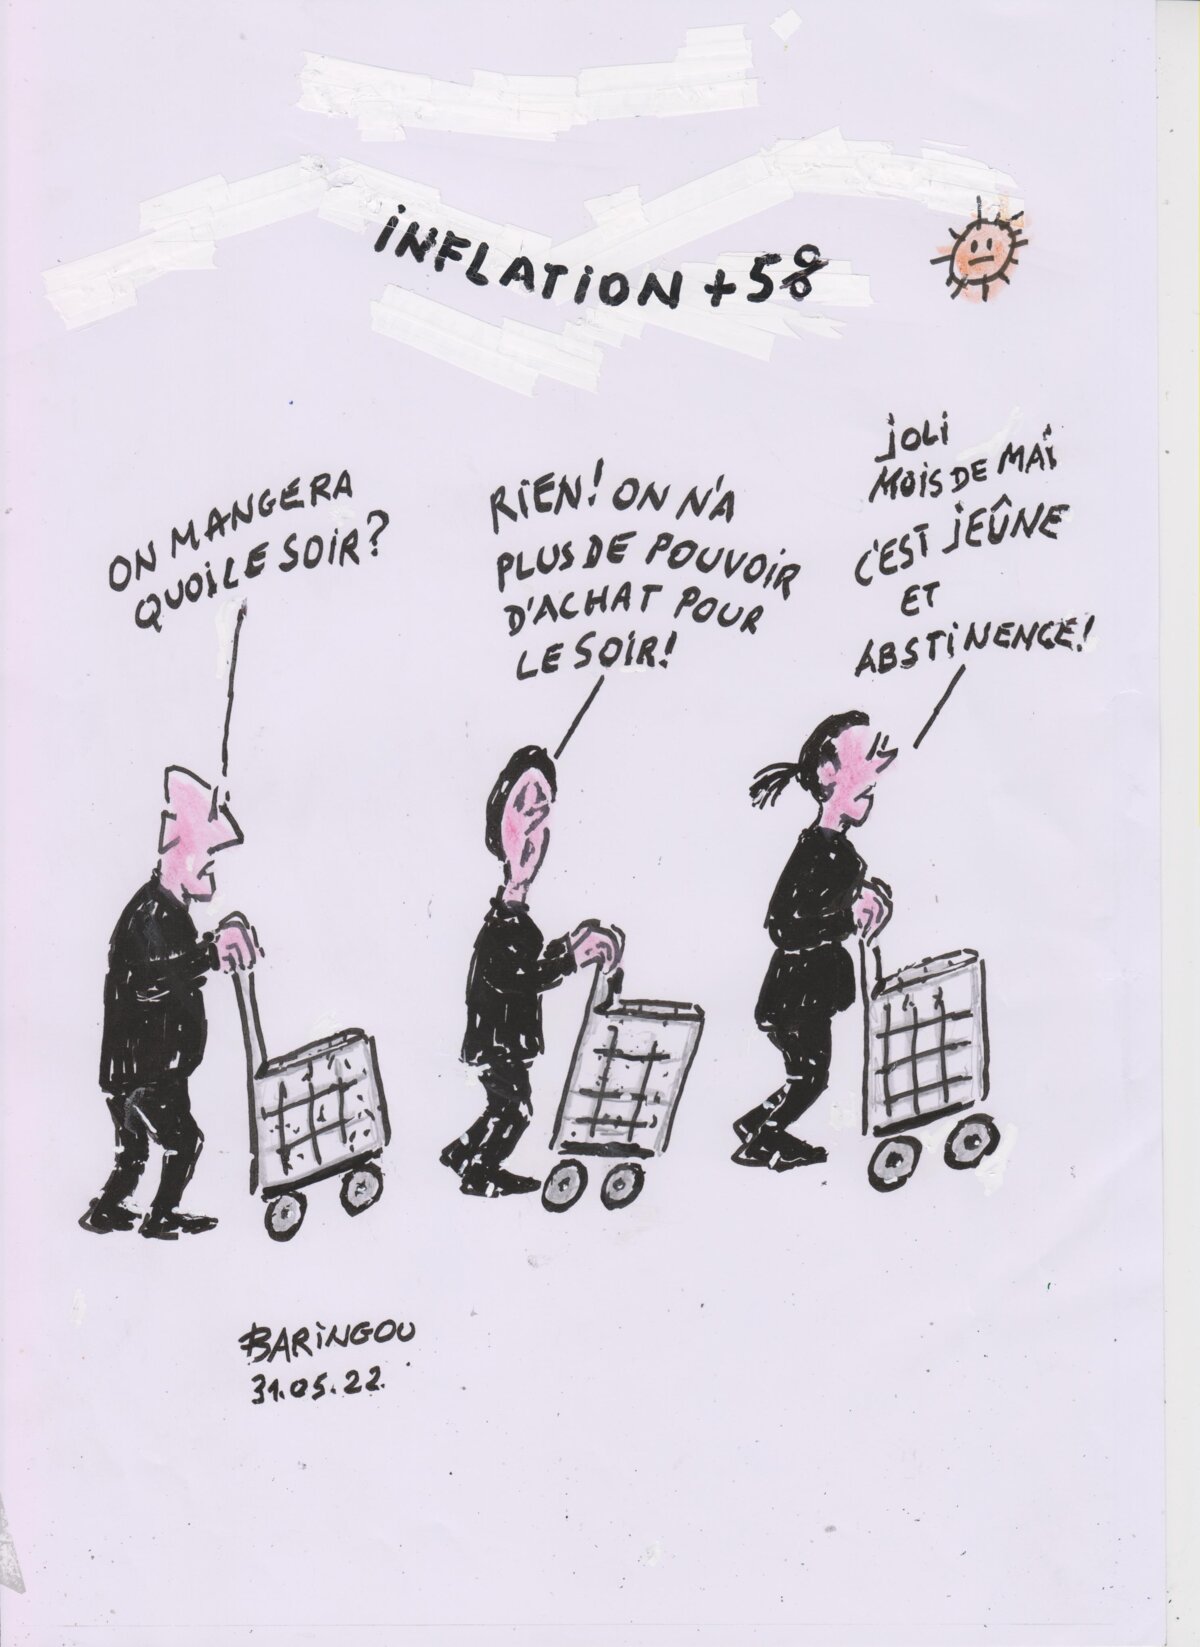 iNFLATiON +5%
ON MANGERA
QUOi LE SOiR?
RiEN! ON N'A
PLUS DE POUVOiR
D'ACHAT POUR
LE SOiR!
JOLi
MOiS DE MAi
C'EST JEÛNE
ET
ABSTiNENCE!
BARiNGOU
31.05.22.